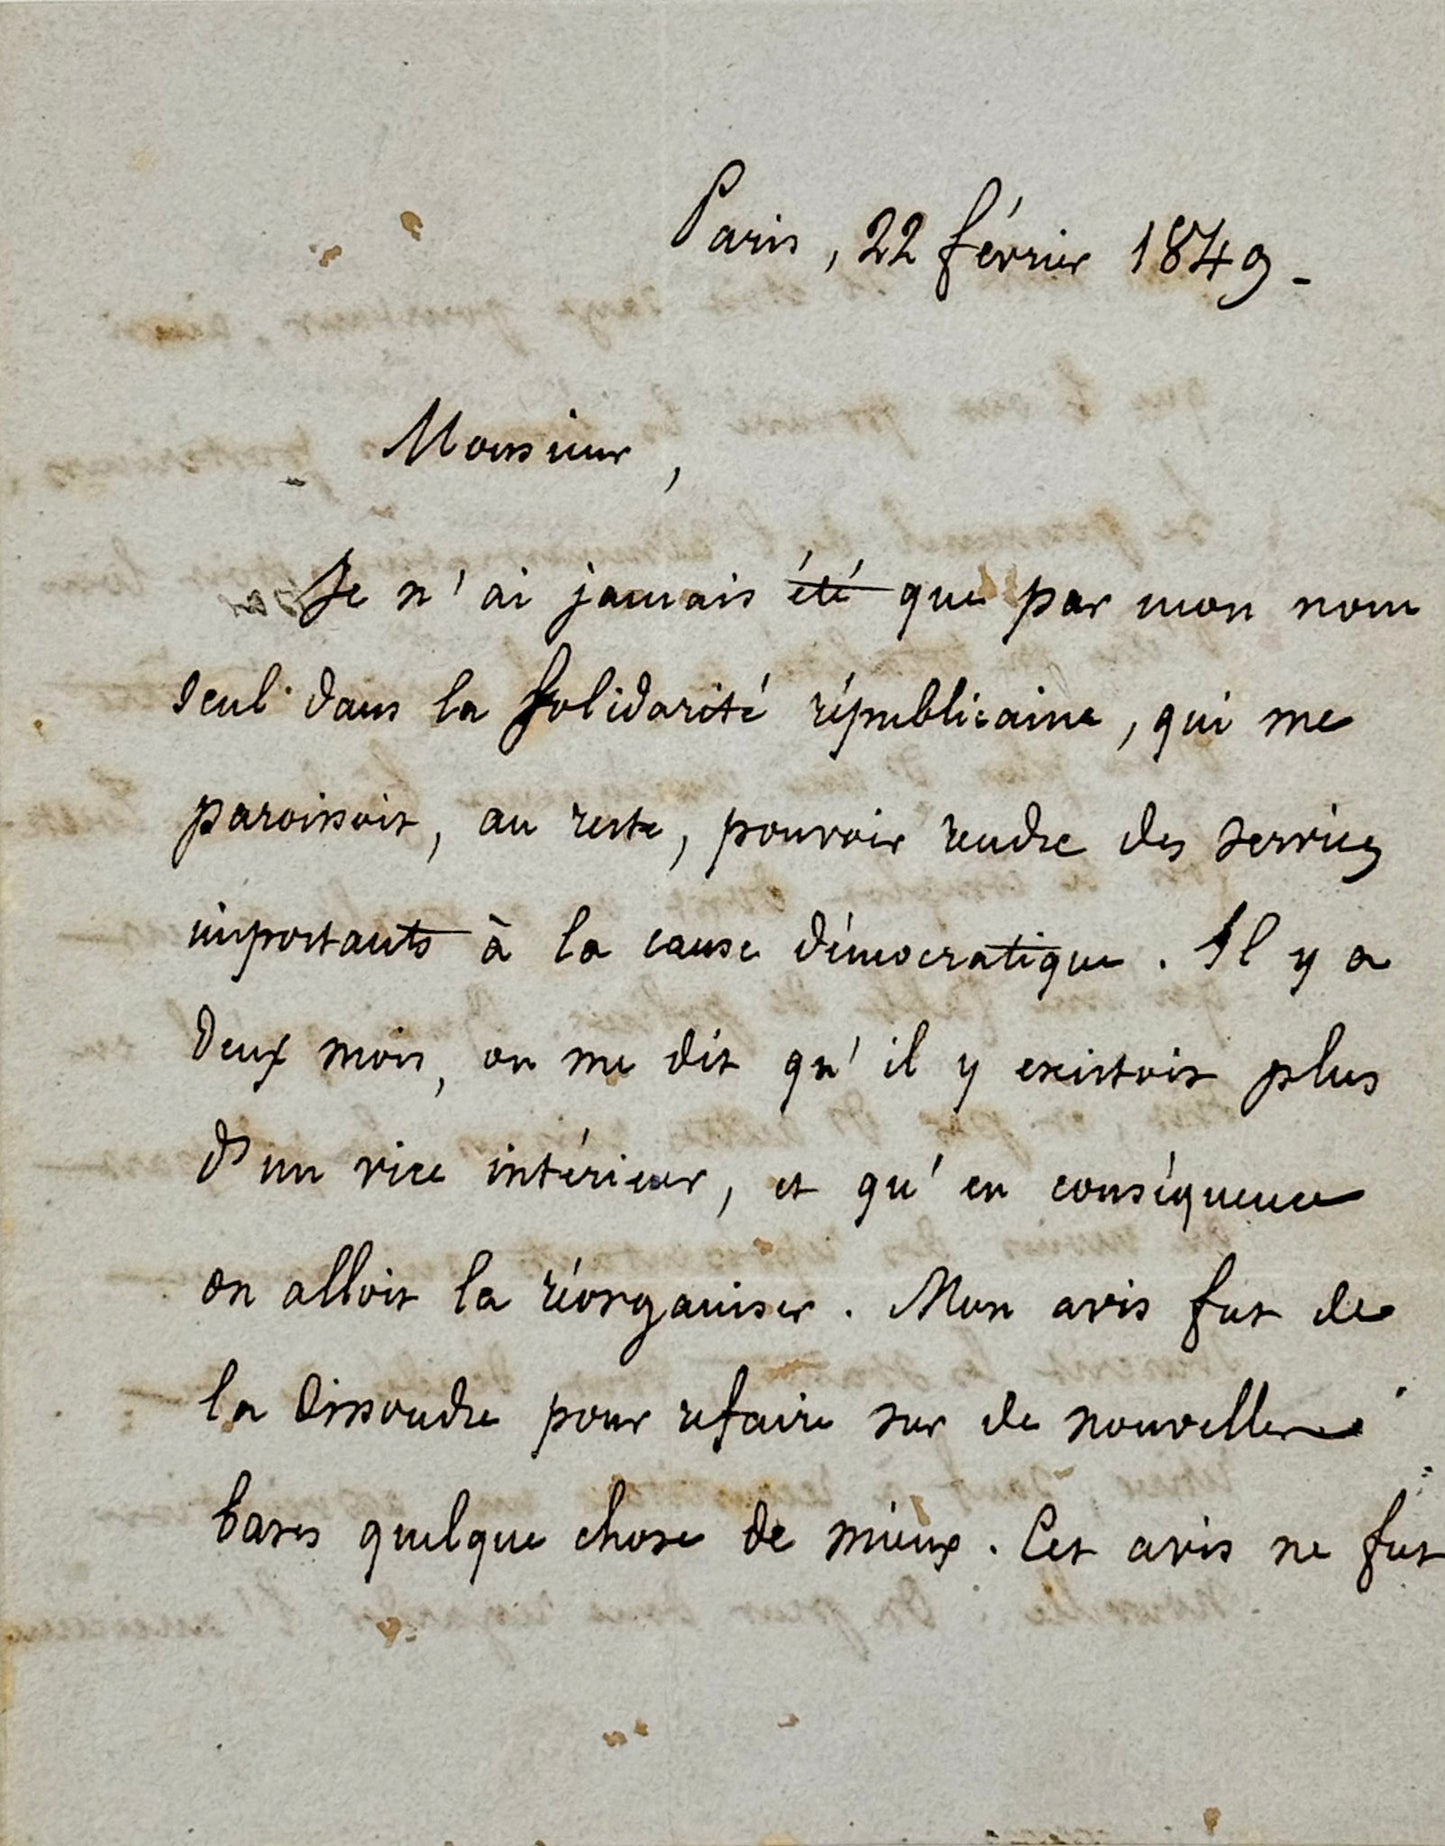 Paris, 22 février 1849.
Monsieur,
Je n'ai jamais été que par mon nom
seul dans la Solidarité républicaine, qui me
paroissoit, au reste, pouvoir rendre des services
importants à la cause démocratique. Il y a
deux mois, on me dit qu'il y existoit plus
d'un vice intérieur, et qu'en conséquence
on alloit la réorganiser. Mon avis fut de
la dissoudre pour refaire sur de nouvelles
bases quelque chose de mieux. Cet avis ne fut